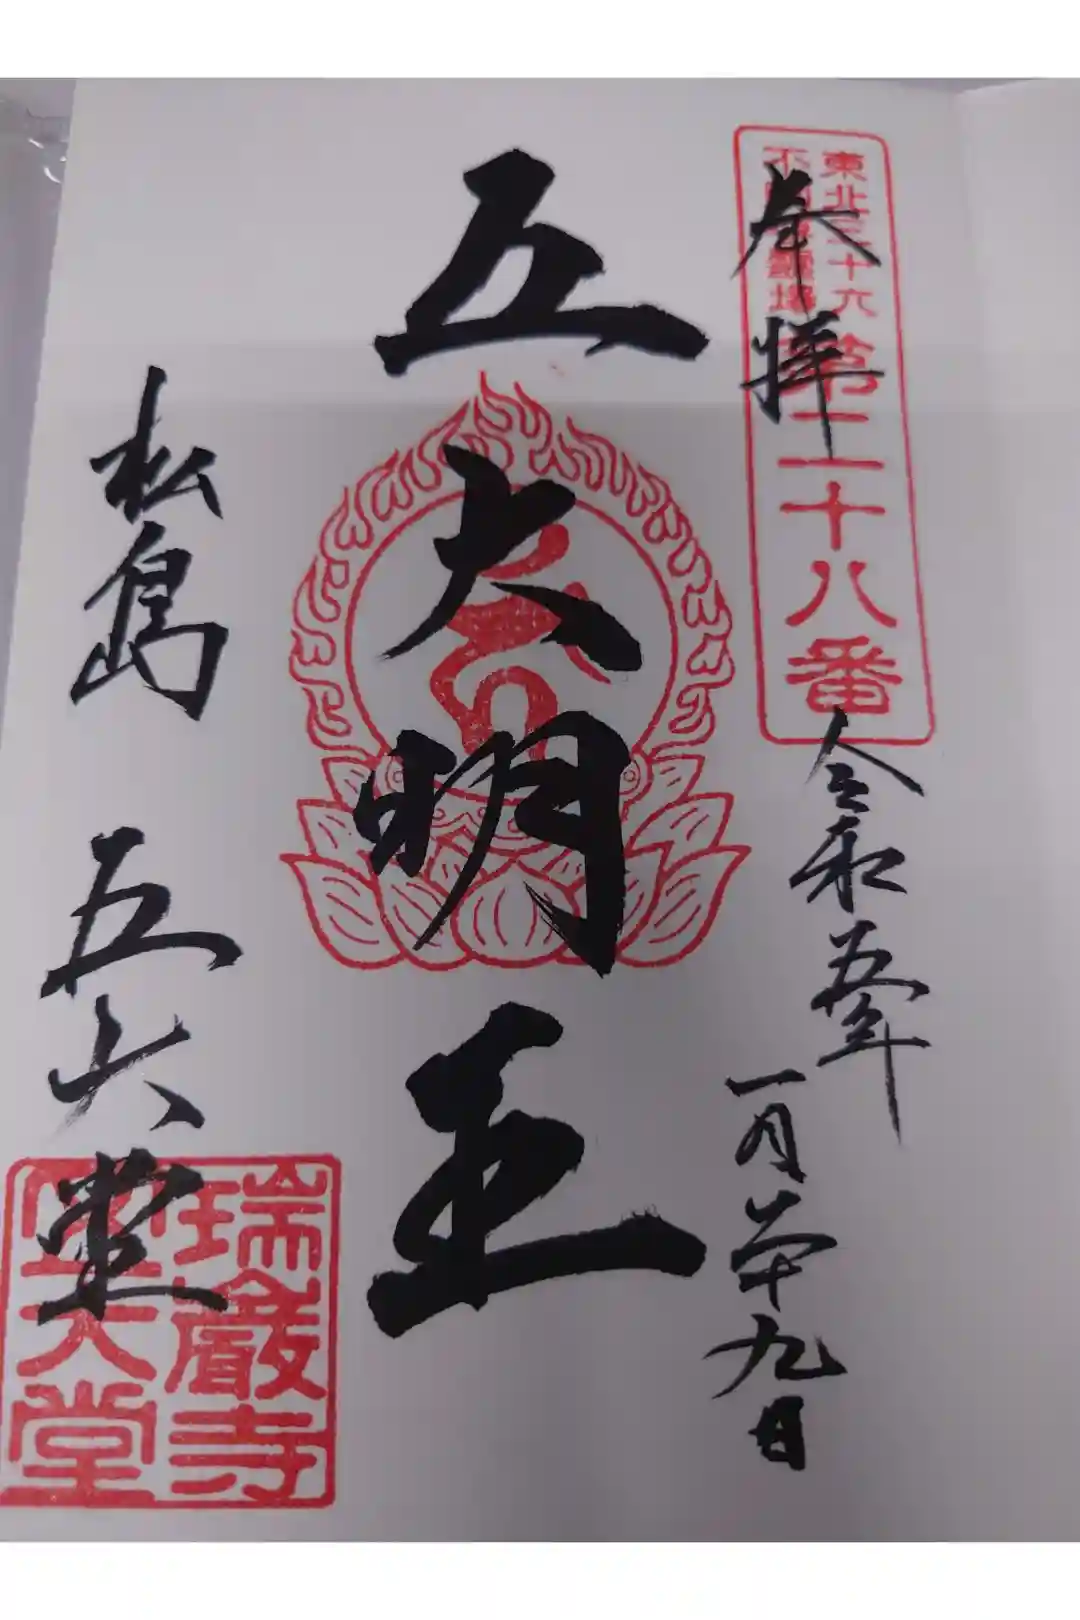 東北三十六
不動尊霊場
第二十八番
奉拝
令和五年
一月 九日
五大明王
松島 五大堂
瑞巌寺
五大堂